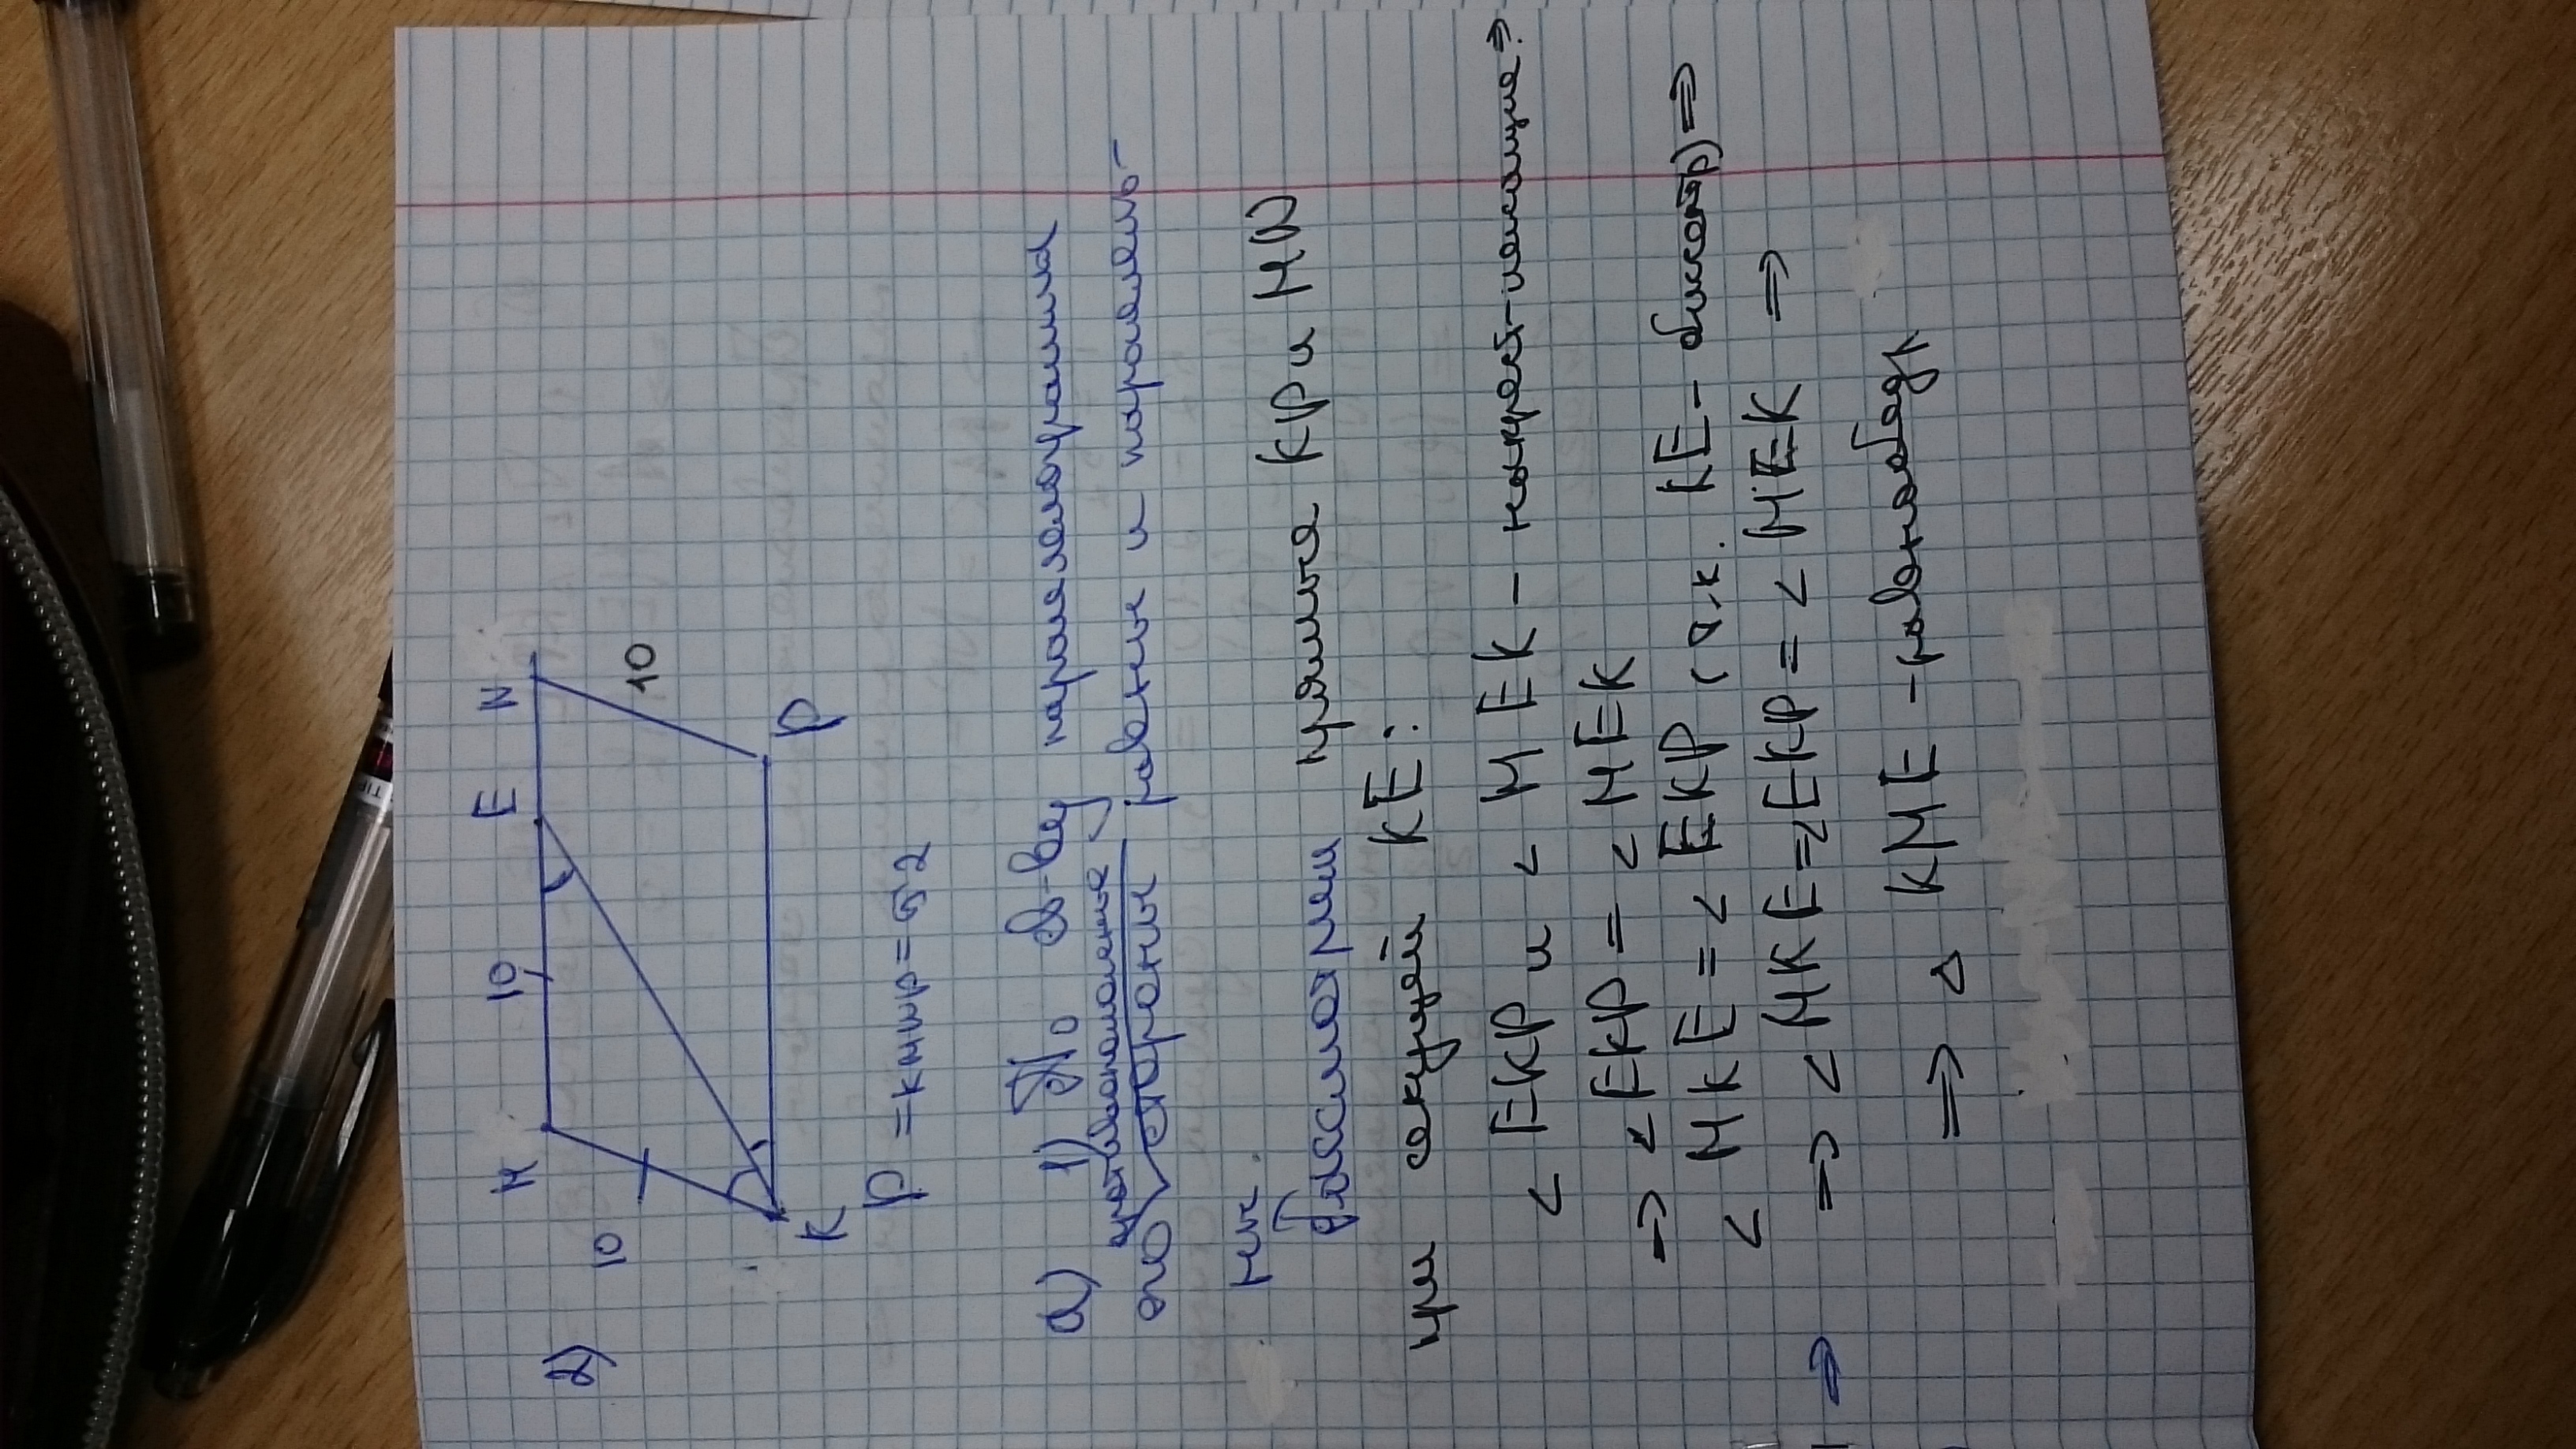 2)
M 10 E N
10
10
K P
P =кмнр=52
а) 1) По св-ву параллелограмма
противоположные
его стороны равны и параллель-
ны.
Рассмотрим прямые KP и MN
при секущей KE:
< EKP и < MEK – накрест-лежащие ⇒
⇒ < EKP = < MEK
< MKE = < EKP (т.к. KE – биссектр) ⇒
⇒ < MKE = < EKP = < MEK ⇒
⇒ △ KME – равнобедр
⇒
TIP